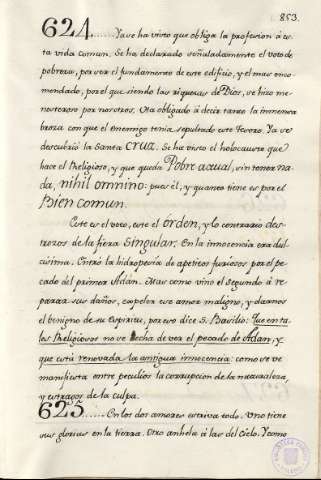 853.
624...... Ya se ha visto que obliga la profesion à es-
ta vida comun. Se ha declarado señaladamente el voto de
pobreza, por ser el fundamento de este edificio, y el mas enco-
mendado, por el que siendo las riquezas de Dios, se hizo me-
nesteroso por nosotros. Ha obligado à decir tanto la inmensa
broza con que el enemigo tenia sepultado este tesoro. Ya se
descubrió la santa cruz. Se ha visto el holocausto que
hace el Religioso, y que queda Pobre actual, sin tener na-
da, nihil omnino: pues èl, y quanto tiene es por el
Bien comun.
Este es el voto, este el órden, y lo contrario des-
trozos de la fiera singular. En la innocencia era dul-
cisima. Entró la hidropesía de apetitos furiosos por el pe-
cado del primer Adán. Mas como vino el segundo à re-
parar sus daños, expeler ese amor maligno, y darnos
el benigno de su Espiritu, por eso dice S. Basilio: Que en ta-
les Religiosos no se hecha de ver el pecado de Adan, y
que està renovada la antigua innocencia: como se ve
manifiesta entre peculios la corrupcion de la naturaleza,
y estragos de la culpa.
625..... En los dos amores estriva todo. Uno tiene
sus glorias en la tierra. Otro anhela à las del Cielo. Y como